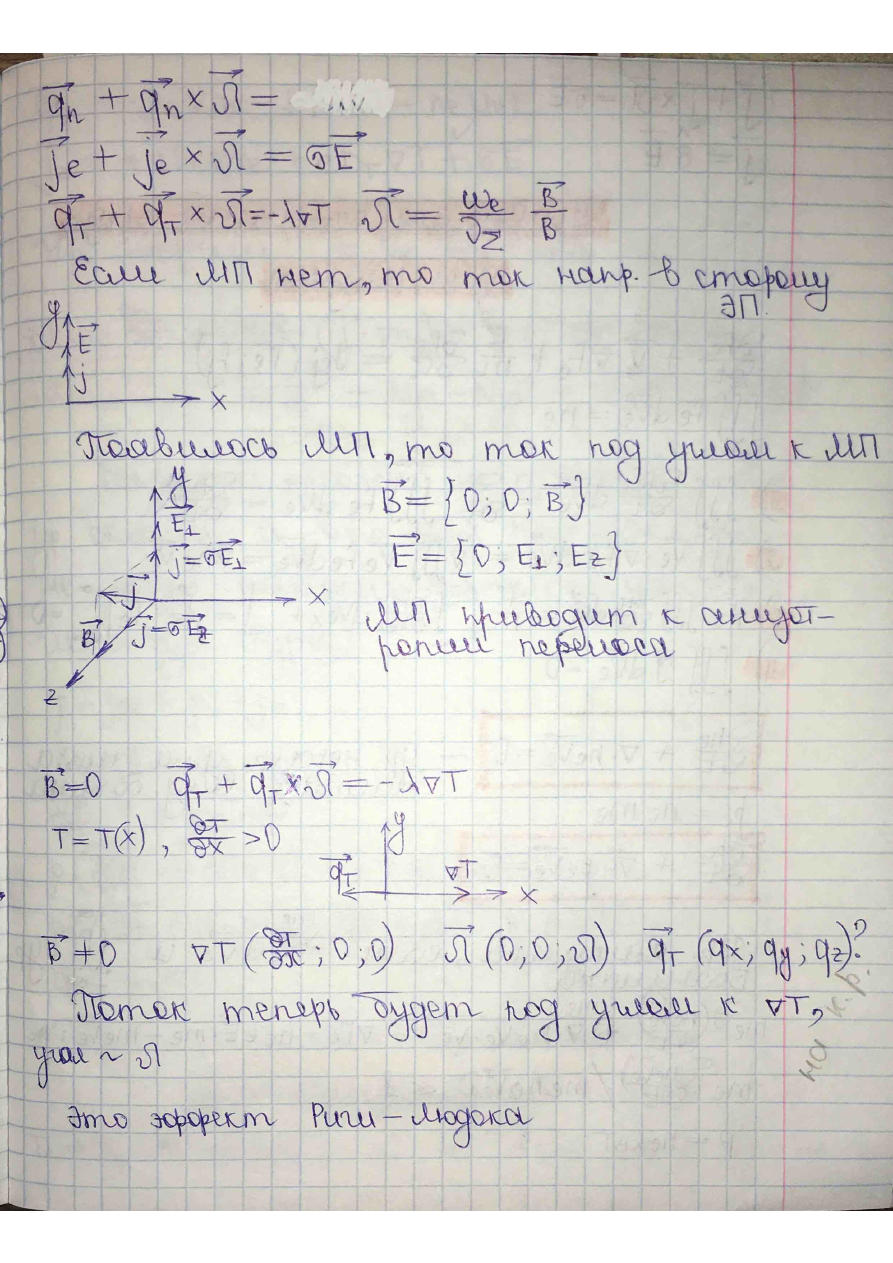 q⃗п + q⃗п × Л⃗ =
j⃗e + j⃗e × Л⃗ = σE⃗
q⃗T + q⃗T × Л⃗ = -λ∇T Л⃗ = ωe/νΣ B⃗/B
Если МП нет, то ток напр. в сторону
ЭП.
y
E⃗
j
x
Появилось МП, то ток под углом к МП
y
E⃗⊥
j⃗=σE⃗⊥
j⃗
x
B⃗
j⃗=σE⃗z
z
B⃗ = {0; 0; B⃗}
E⃗ = {0; E⊥; Ez}
МП приводит к анизот-
ропии переноса
B⃗=0 q⃗T + q⃗T × Л⃗ = -λ∇T
T = T(x), ∂T/∂x > 0
y
q⃗T
∇T
x
B⃗ ≠ 0 ∇T (∂T/∂x; 0; 0) Л⃗ (0; 0; Л) q⃗T (qx; qy; qz)?
Поток теперь будет под углом к ∇T,
угол ~ Л
на к.р.
Это эффект Риги - Людока